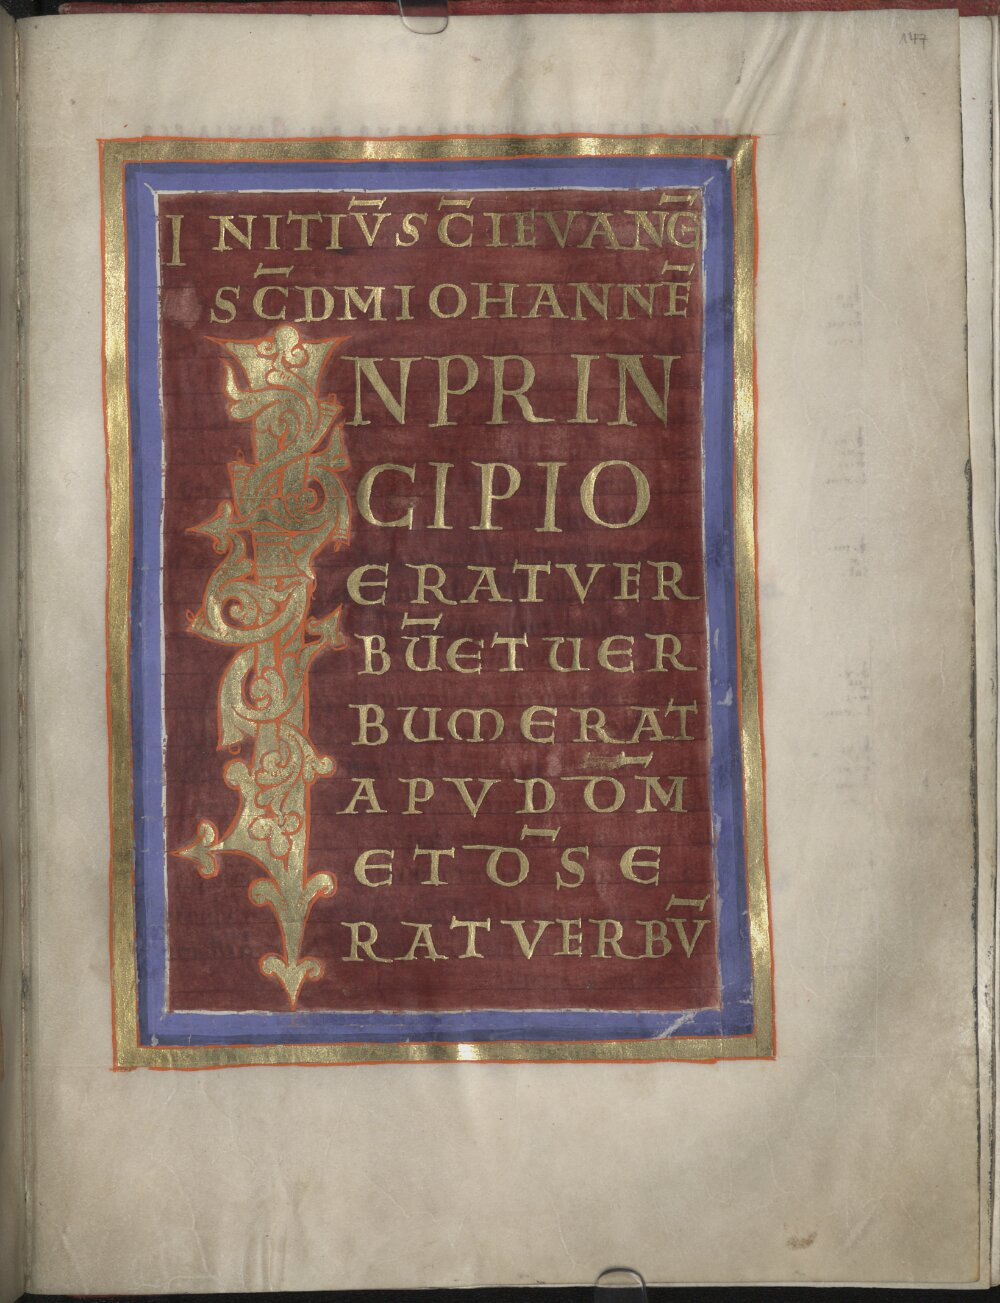 147
INITIV̄ SC̄I EVANḠ
SC̄DM IOHANNĒ
IN PRIN
CIPIO
ERAT VER
BŪ ET UER
BUM ERAT
APVD DO̅M
ET DS̄ E
RAT VERBV̄